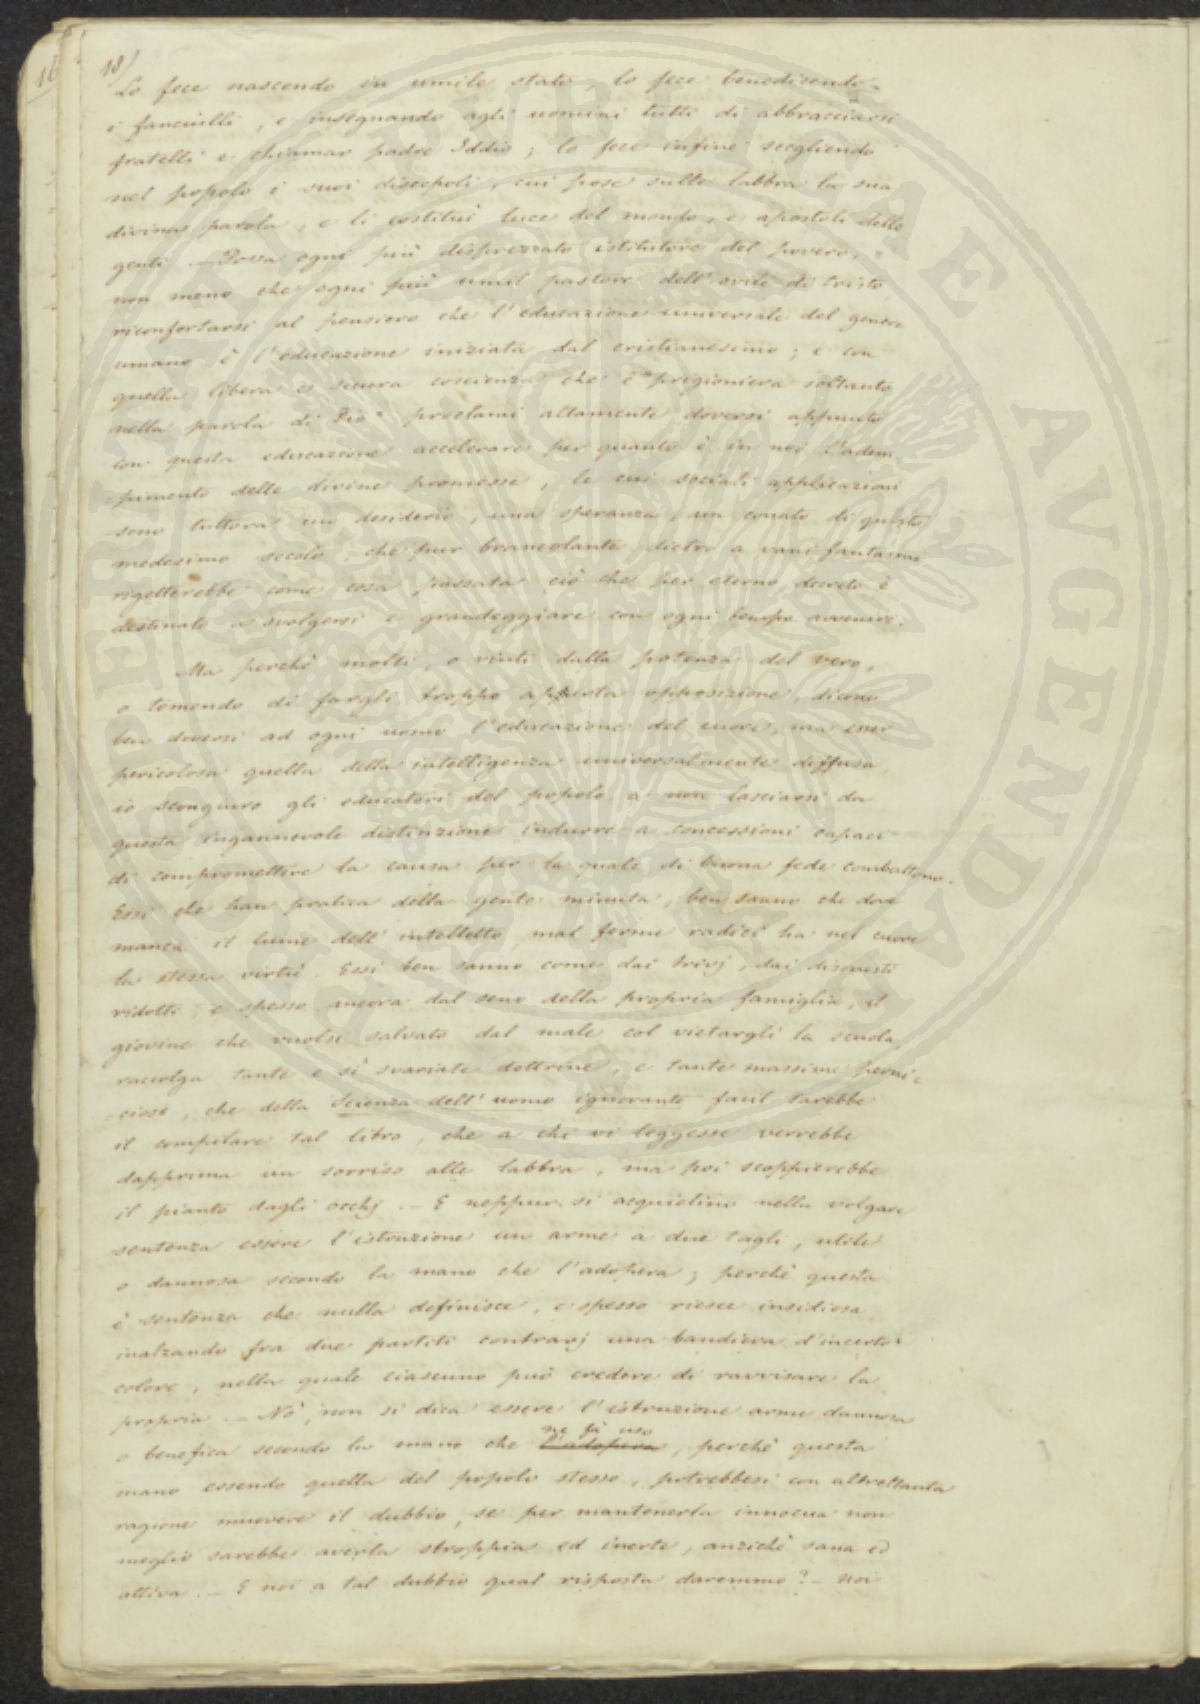 18)
Lo fece nascendo in umile stato, lo fece benedicendo
i fanciulli, e insegnando agli uomini tutti di abbracciarsi
fratelli e chiamar padre Iddio; lo fece infine scegliendo
nel popolo i suoi discepoli, cui pose sulle labbra la sua
divina parola, e li costituì luce del mondo, e apostoli delle
genti. – Possa ogni più disprezzato istitutore del povero,
non meno che ogni più umil pastore dell'ovile di Cristo,
riconfortarsi al pensiero che l'educazione universale del genere
umano è l'educazione iniziata dal cristianesimo; e con
quella libera e sicura coscienza che è "prigioniera soltanto
nella parola di Dio" proclami altamente doversi appunto
con questa educazione accelerare per quanto è in noi l'adem-
-pimento delle divine promesse, le cui sociali applicazioni
sono tuttora un desiderio, una speranza, un conato di questo
medesimo secolo, che pur brancolante dietro a vani fantasmi
rigetterebbe come cosa passata ciò che per eterno decreto è
destinato a svolgersi e grandeggiare con ogni tempo avvenire.
Ma perchè molti, o vinti dalla potenza del vero,
o temendo di fargli troppo aperta opposizione, dicono
ben doversi ad ogni uomo l'educazione del cuore, ma esser
pericolosa quella della intelligenza universalmente diffusa,
io scongiuro gli educatori del popolo a non lasciarsi da
questa ingannevole distinzione indurre a concessioni capaci
di compromettere la causa per la quale di buona fede combattono.
Essi che han pratica della gente minuta, ben sanno che dove
manca il lume dell'intelletto, mal ferme radici ha nel cuore
la stessa virtù. Essi ben sanno come dai trivj, dai disonesti
ridotti, e spesso ancora dal seno della propria famiglia, il
giovine che vuolsi salvato dal male col vietargli la scuola,
raccolga tante e sì svariate dottrine, e tante massime perni-
-ciose, che della Scienza dell'uomo ignorante facil sarebbe
il compilare tal libro, che a chi vi leggesse verrebbe
dapprima un sorriso alle labbra, ma poi scoppierebbe
il pianto dagli occhj. – E neppur si acquietino nella volgare
sentenza essere l'istruzione un arme a due tagli, utile
o dannosa secondo la mano che l'adopera; perchè questa
è sentenza che nulla definisce, e spesso riesce insidiosa
inalzando fra due partiti contrarj una bandiera d'incerto
colore, nella quale ciascuno può credere di ravvisare la
propria. – No, non si dica essere l'istruzione arme dannosa
ne fà uso
o benefica secondo la mano che l'adopera, perchè questa
mano essendo quella del popolo stesso, potrebbesi con altrettanta
ragione muovere il dubbio, se per mantenerla innocua non
meglio sarebbe averla stroppia ed inerte, anzichè sana ed
attiva. – E noi a tal dubbio qual risposta daremmo? – Noi